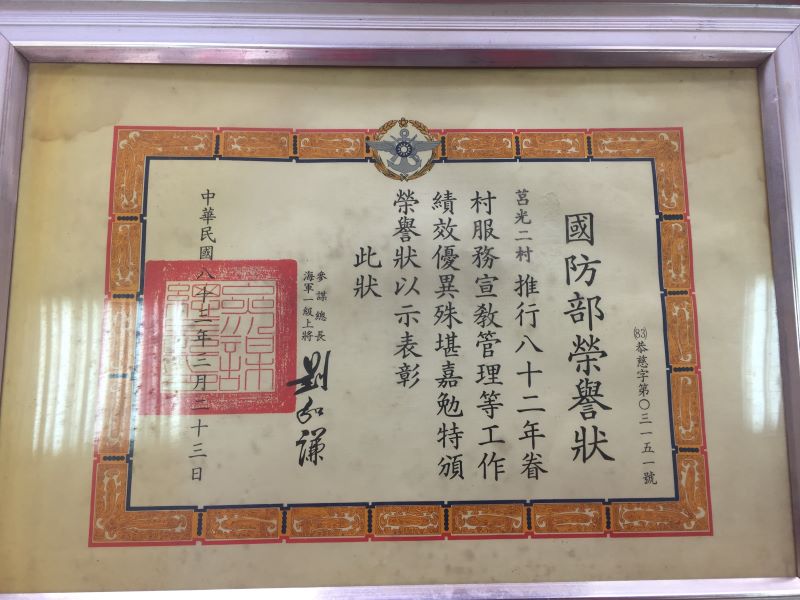 國防部榮譽狀
(83)恭慈字第〇三一五一號
莒光二村推行八十二年眷
村服務宣教管理等工作
績效優異殊堪嘉勉特頒
榮譽狀以示表彰
此狀
參謀總長
海軍一級上將
劉和謙
中華民國八十三年三月二十三日